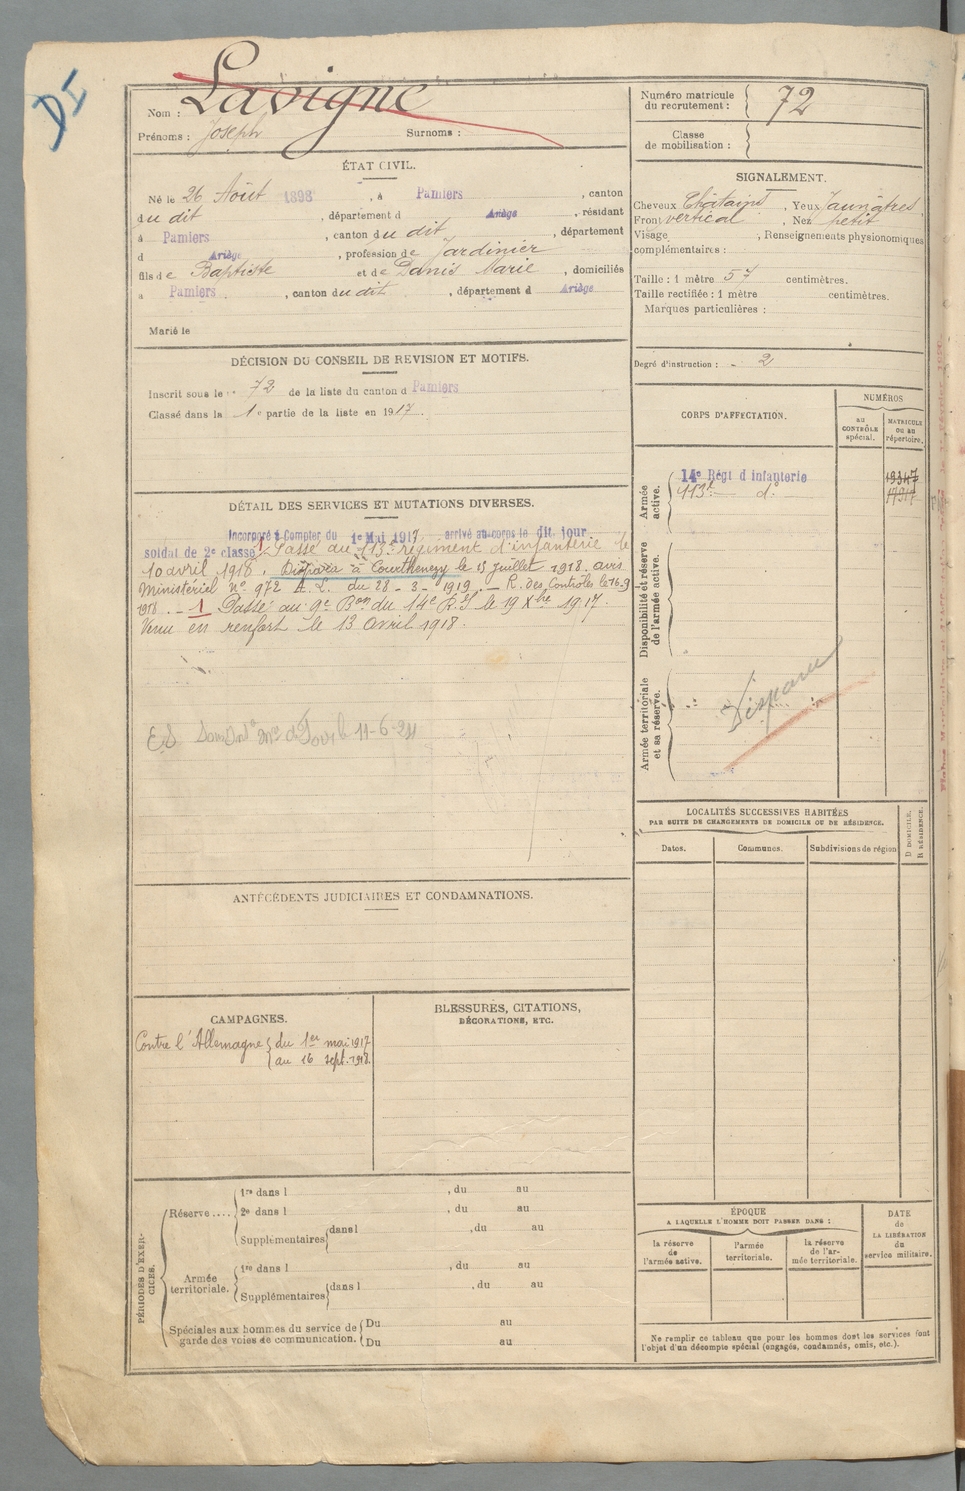 DI
Nom : Lavigne
Prénoms : Joseph Surnoms :
Numéro matricule du recrutement : 72
Classe de mobilisation :
ÉTAT CIVIL.
Né le 26 Août 1898, à Pamiers, canton
du dit, département d Ariège, résidant
à Pamiers, canton du dit, département
d Ariège, profession de Jardinier
fils de Baptiste et de Danis Marie, domiciliés
à Pamiers, canton du dit, département d Ariège
Marié le
SIGNALEMENT.
Cheveux Châtains, Yeux Jaunâtres,
Front vertical, Nez petit
Visage, Renseignements physionomiques
complémentaires :
Taille : 1 mètre 57 centimètres.
Taille rectifiée : 1 mètre centimètres.
Marques particulières :
Degré d'instruction : 2
DÉCISION DU CONSEIL DE REVISION ET MOTIFS.
Inscrit sous le n° 72 de la liste du canton d Pamiers
Classé dans la 1e partie de la liste en 1917.
DÉTAIL DES SERVICES ET MUTATIONS DIVERSES.
Incorporé à Compter du 1e Mai 1917 arrivé au corps le dit jour
soldat de 2e classe 1 Passé au 113e régiment d'infanterie le
10 avril 1918. Disparu à Courthenezy le 15 juillet 1918. avis
Ministériel n° 972 A.L. du 28 - 3 - 1919. - R. des Contrôles le 16.9
1918. - 1 Passé au 9e Bon du 14e R.I le 19 Xbre 1917.
Venu en renfort le 13 avril 1918.
11-6-24
CORPS D'AFFECTATION.
NUMÉROS
au CONTRÔLE spécial.
MATRICULE ou au répertoire.
Armée active.
14e Régt d infanterie 19347
113e do 17317
Disponibilité et réserve de l'armée active.
Armée territoriale et sa réserve.
Disparu
LOCALITÉS SUCCESSIVES HABITÉES
PAR SUITE DE CHANGEMENTS DE DOMICILE OU DE RÉSIDENCE.
Dates. Communes. Subdivisions de région
D DOMICILE.
R RÉSIDENCE.
ANTÉCÉDENTS JUDICIAIRES ET CONDAMNATIONS.
CAMPAGNES.
Contre l'Allemagne { du 1er mai 1917
au 16 sept. 1918.
BLESSURES, CITATIONS,
DÉCORATIONS, ETC.
PÉRIODES D'EXERCICES.
Réserve....
1re dans l , du au
2e dans l , du au
Supplémentaires dans l , du au
Armée territoriale.
1re dans l , du au
Supplémentaires dans l , du au
Spéciales aux hommes du service de
garde des voies de communication.
Du au
Du au
ÉPOQUE
A LAQUELLE L'HOMME DOIT PASSER DANS :
la réserve de l'armée active.
l'armée territoriale.
la réserve de l'armée territoriale.
DATE de LA LIBÉRATION du service militaire.
Ne remplir ce tableau que pour les hommes dont les services font
l'objet d'un décompte spécial (engagés, condamnés, omis, etc.).